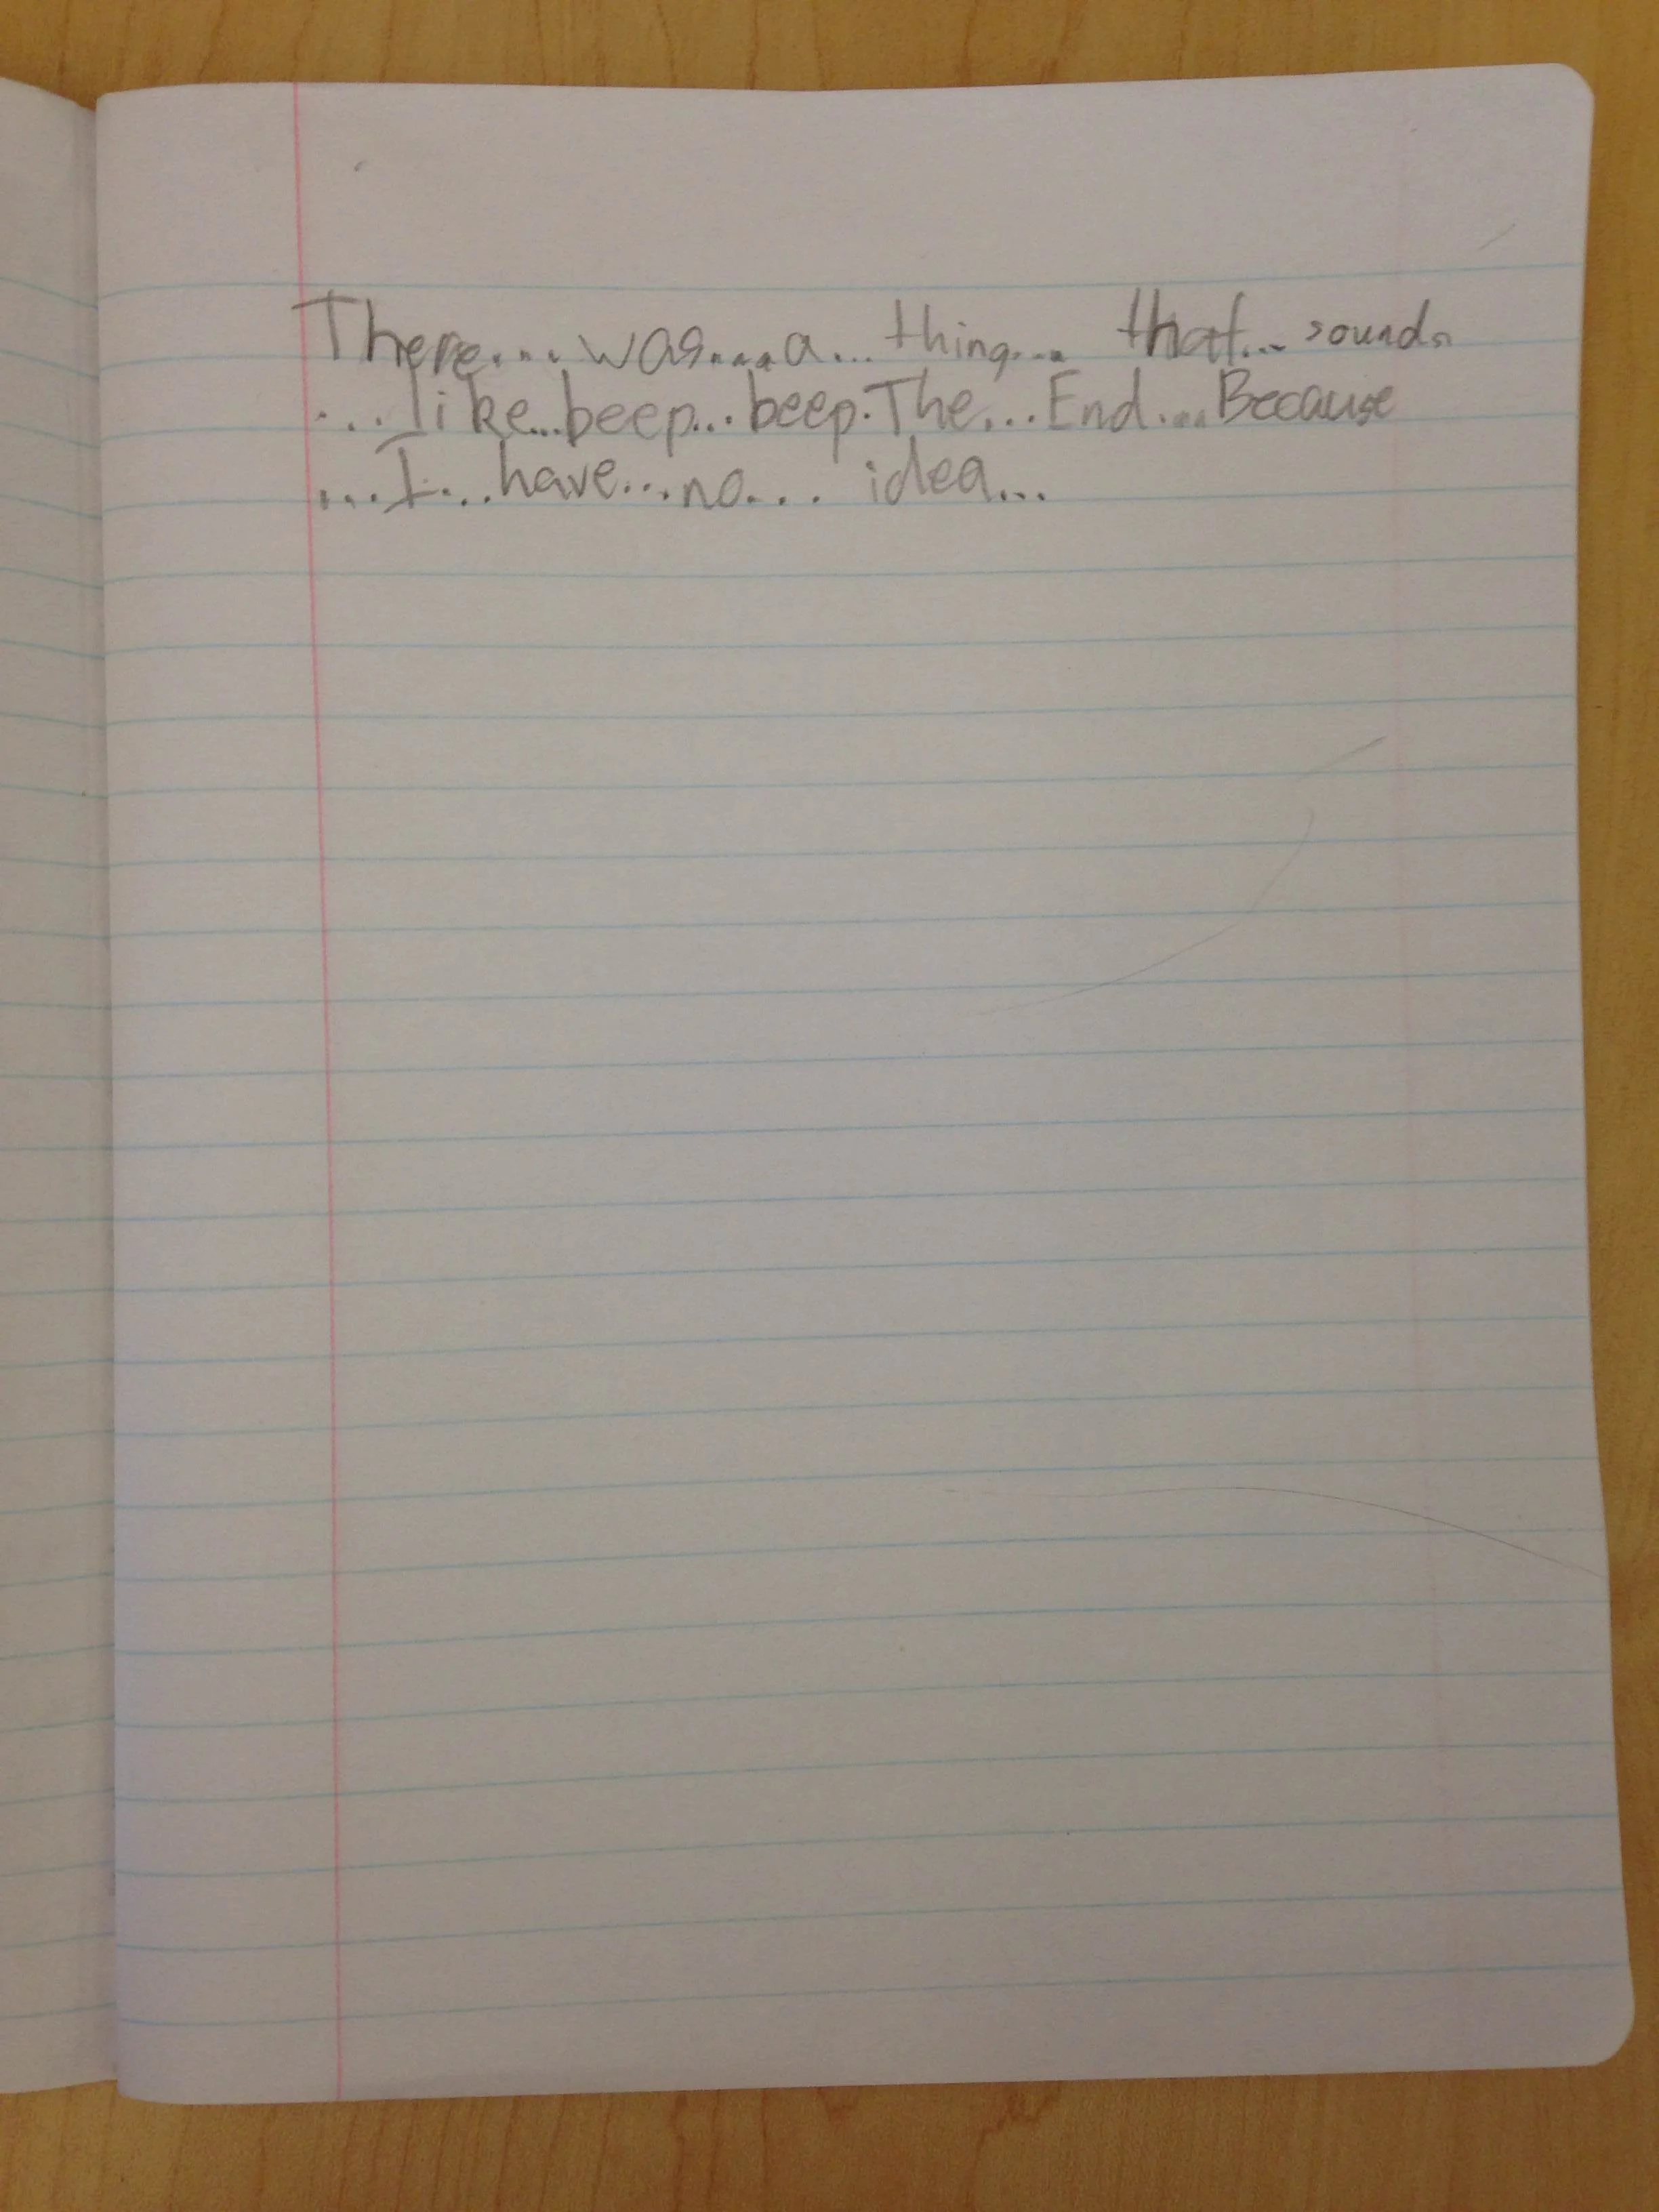 There.... was....a... thing.... that... sounds
...like...beep...beep.The...End....Because
...I...have...no... idea...